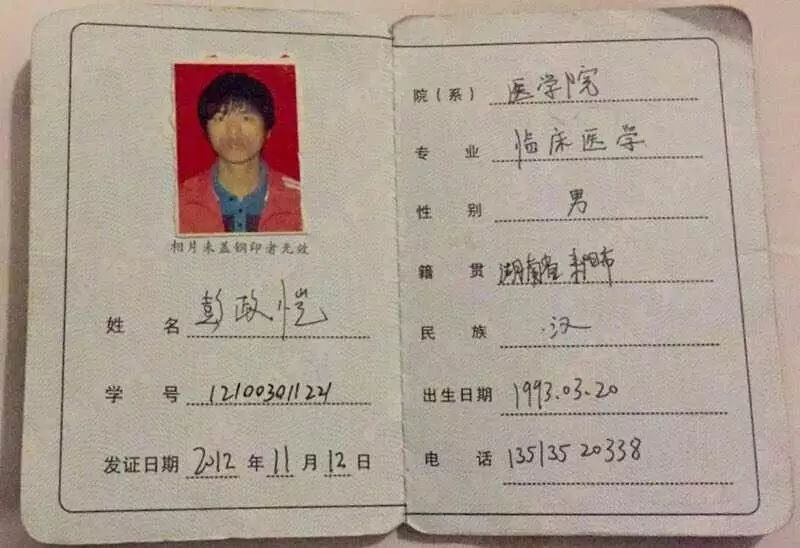 相片未盖钢印者无效
姓 名 彭政恺
学 号 12100301221
发证日期 2012 年 11 月 12 日
院（系） 医学院
专 业 临床医学
性 别 男
籍 贯 湖南省耒阳市
民 族 汉
出生日期 1993.03.20
电 话 13513520338